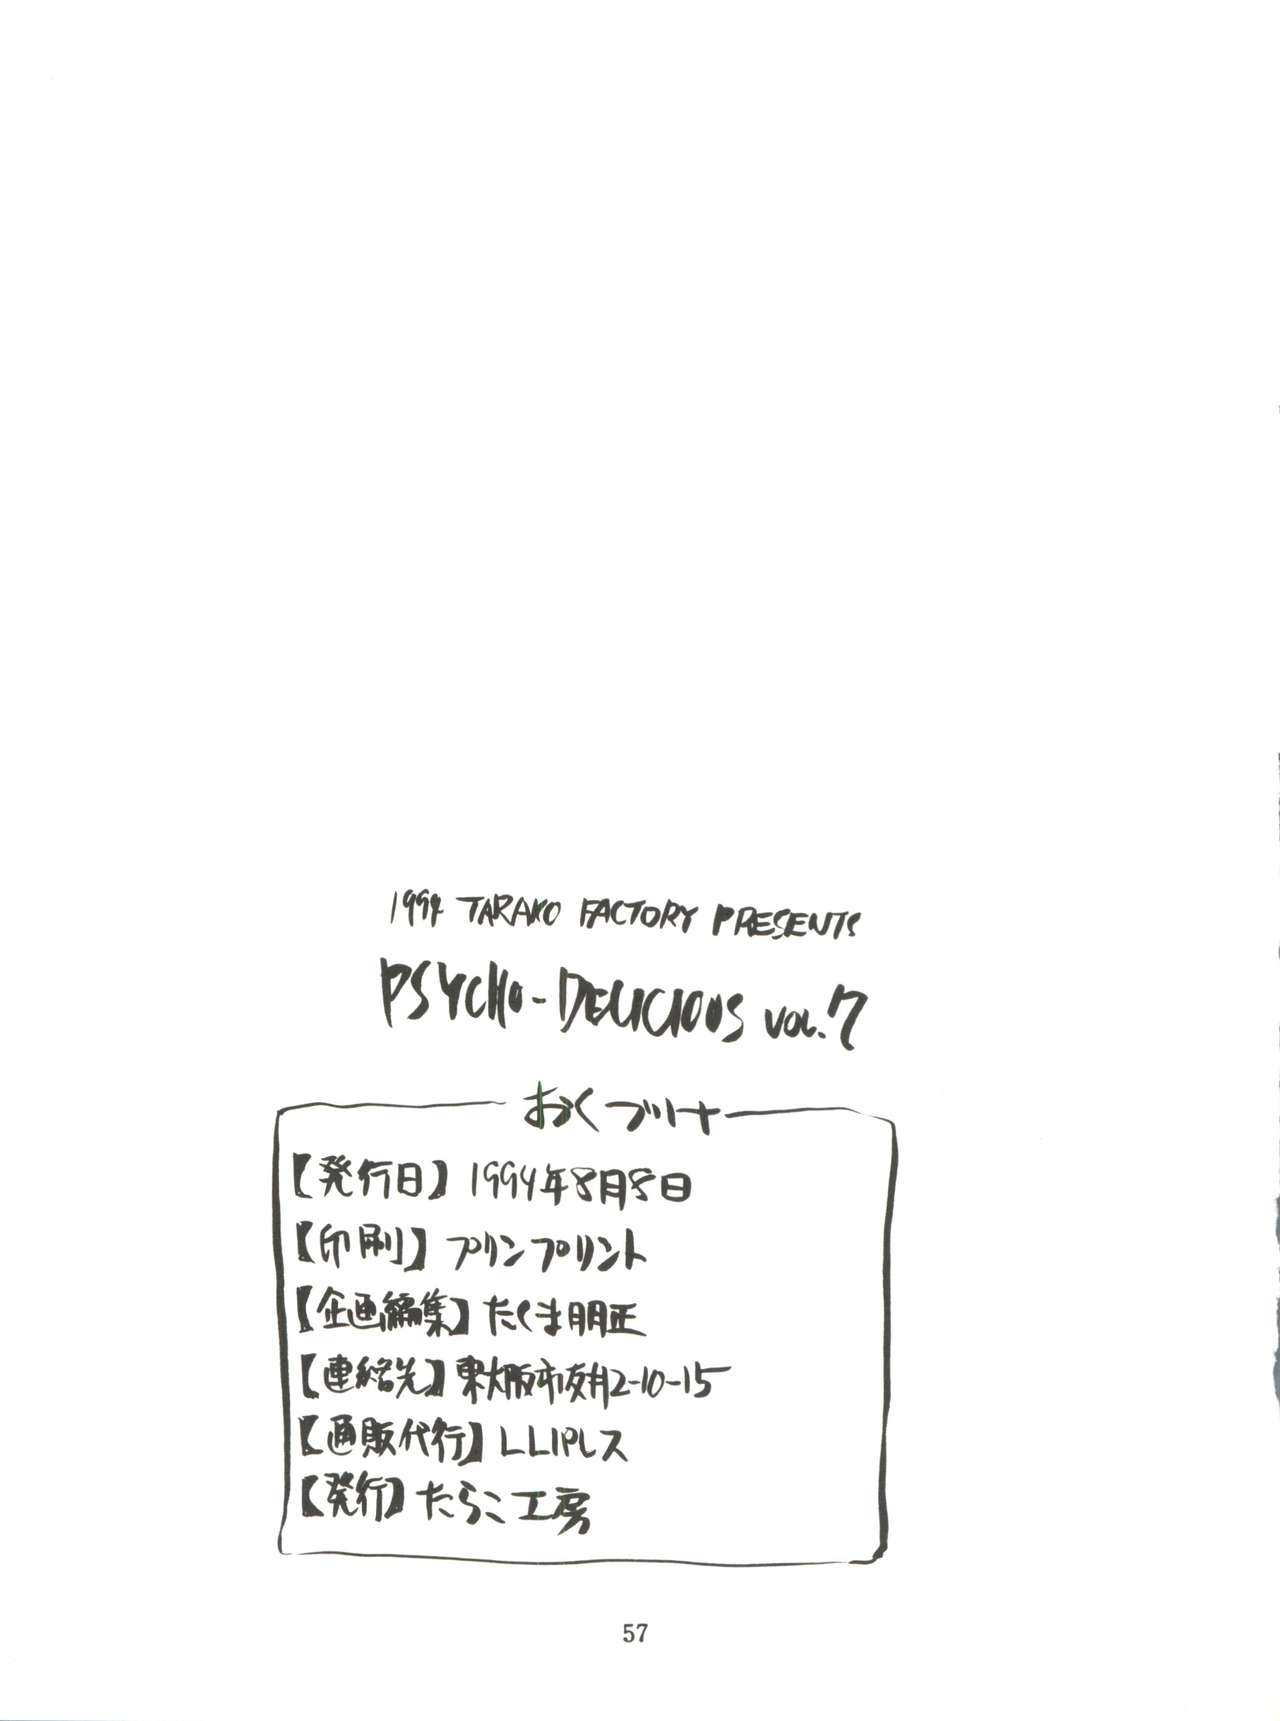 1994 TARAKO FACTORY PRESENTS
PSYCHO-DELICIOUS VOL.7
おくづけ
【発行日】1994年8月8日
【印刷】プリンプリント
【企画編集】たくま朋正
【連絡先】東大阪市友井2-10-15
【通販代行】LLパレス
【発行】たらこ工房
57